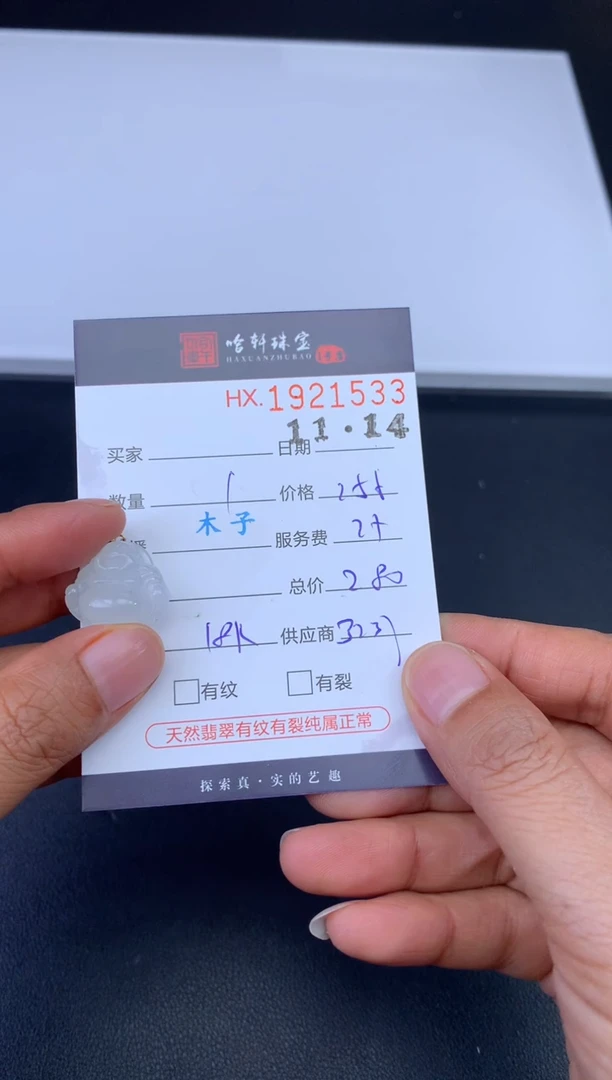 哈轩珠宝
HAXUANZHUBAO
HX.1921533
11·14
买家 日期
数量 1 价格
木子
服务费
总价 280
18K 供应商
有纹 有裂
天然翡翠有纹有裂纯属正常
探索真·实的艺趣